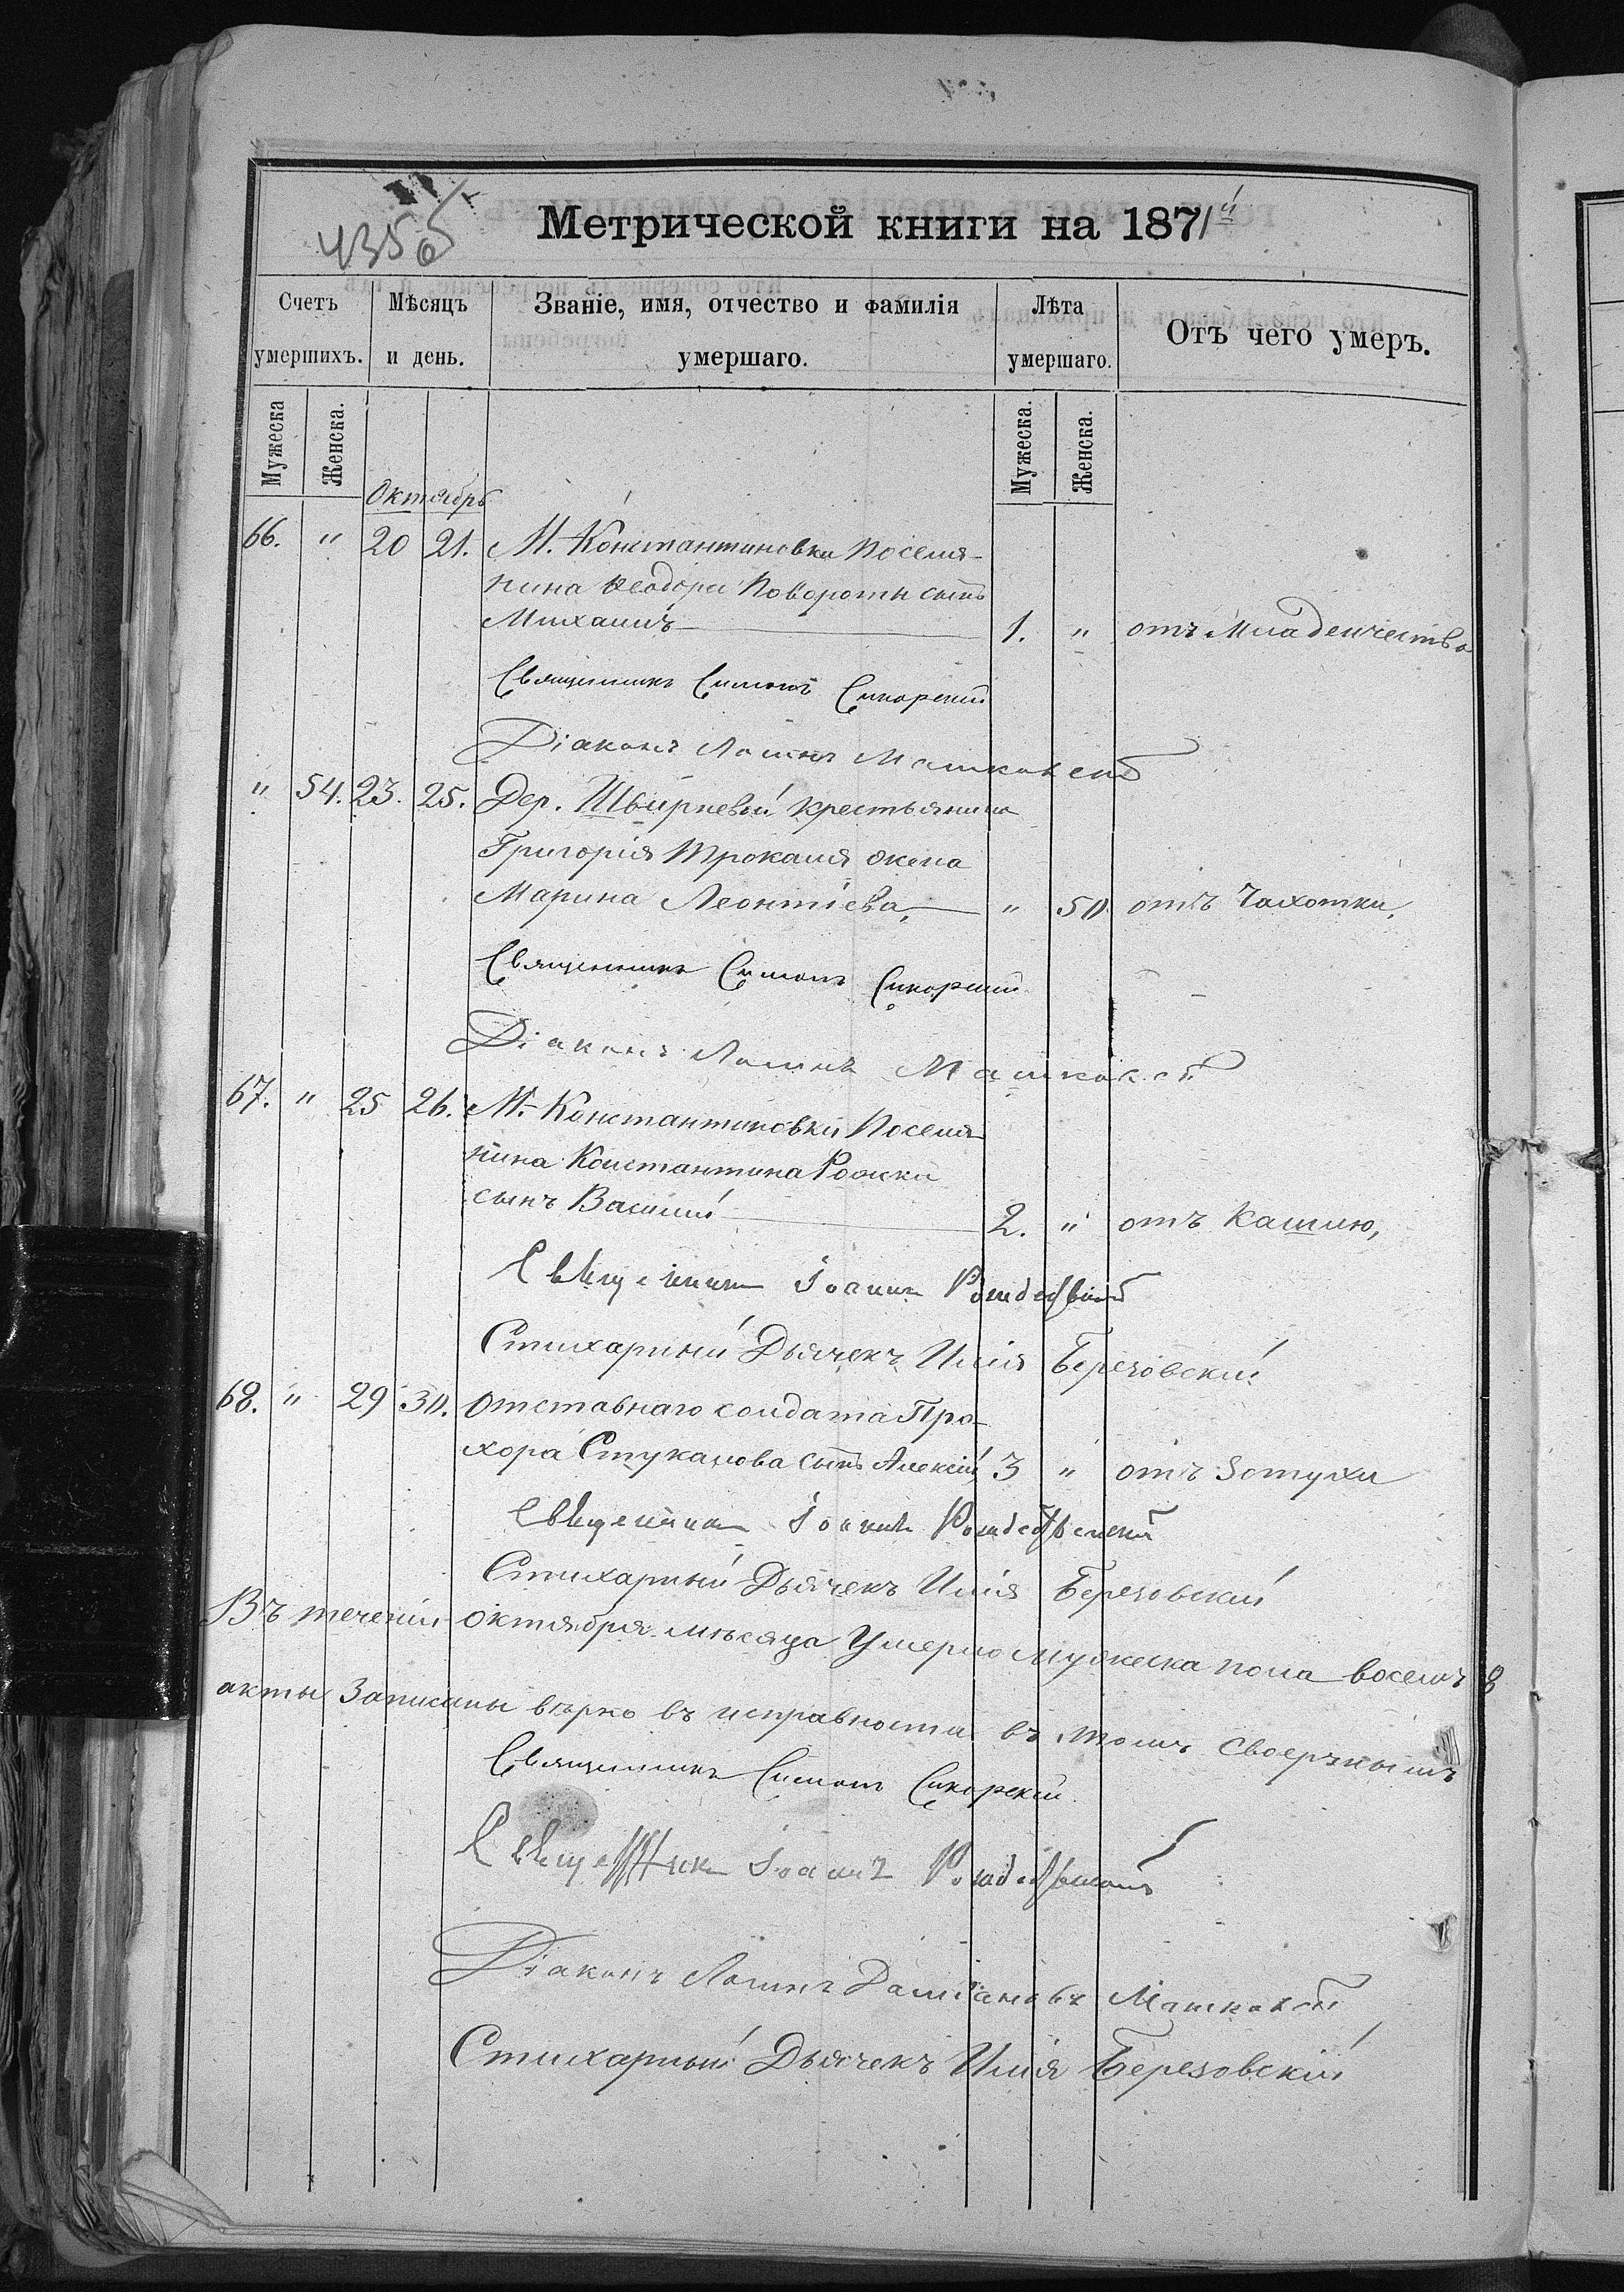 435об
Метрической книги на 1871й
Счетъ умершихъ. Мѣсяцъ и день. Званіе, имя, отчество и фамилія умершаго. Лѣта умершаго. Отъ чего умеръ.
Мужеска Женска. Мужеска. Женска.
Октябрь
66. " 20 21. М. Константиновки поселя-
нина Ѳеодора Повороты сынъ
Михаилъ 1. " отъ младенчества
Священникъ Симонъ Сикорскій
Діаконъ Логинъ
" 54. 23. 25. Дер. Швирневой крестьянина
Григорія Трокаля жена
Марина Леонтіева, " 50 отъ чахотки,
Священникъ Симонъ Сикорскій
Діаконъ Логинъ
67. " 25 26. М. Константиновки Поселя-
нина Константина Рожки
сынъ Василій 2. " отъ кашлю,
Священникъ Іоаннъ
Стихарный Дьячекъ Илія Березовскій
68. " 29 30. Отставнаго солдата Про-
хора Стукалова сынъ Алексій 3 " отъ
Священникъ Іоаннъ
Стихарный Дьячекъ Илія Березовскій
Въ теченіи октября мѣсяца умерло мужеска пола восемъ 8
акты записаны вѣрно въ исправности въ томъ
Священникъ Симонъ Сикорскій
Священникъ Іоаннъ
Діаконъ Логинъ Даміановъ
Стихарный Дьячекъ Илія Березовскій